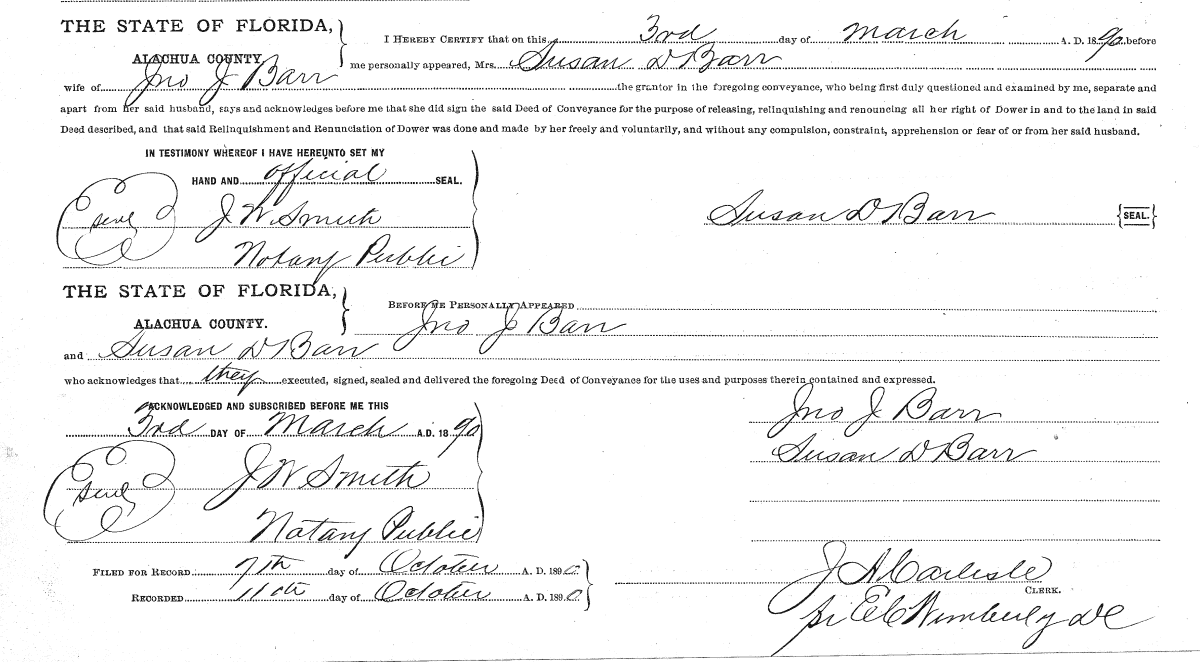 THE STATE OF FLORIDA,
ALACHUA COUNTY.
I HEREBY CERTIFY that on this 3rd day of March A. D. 1890. before
me personally appeared, Mrs. Susan D Barr
wife of Jno J Barr the grantor in the foregoing conveyance, who being first duly questioned and examined by me, separate and
apart from her said husband, says and acknowledges before me that she did sign the said Deed of Conveyance for the purpose of releasing, relinquishing and renouncing all her right of Dower in and to the land in said
Deed described, and that said Relinquishment and Renunciation of Dower was done and made by her freely and voluntarily, and without any compulsion, constraint, apprehension or fear of or from her said husband.
IN TESTIMONY WHEREOF I HAVE HEREUNTO SET MY
HAND AND official SEAL.
Seal J W Smith
Notary Public
Susan D Barr {SEAL.}
THE STATE OF FLORIDA,
ALACHUA COUNTY.
BEFORE ME PERSONALLY APPEARED
Jno J Barr
and Susan D Barr
who acknowledges that they executed, signed, sealed and delivered the foregoing Deed of Conveyance for the uses and purposes therein contained and expressed.
ACKNOWLEDGED AND SUBSCRIBED BEFORE ME THIS
3rd DAY OF March A.D. 1890
Seal J W Smith
Notary Public
Jno J Barr
Susan D Barr
FILED FOR RECORD 7th day of October A. D. 1890.
RECORDED 11th day of October A. D. 1890
J A Carlisle
CLERK.
pr E C Wimberly DC